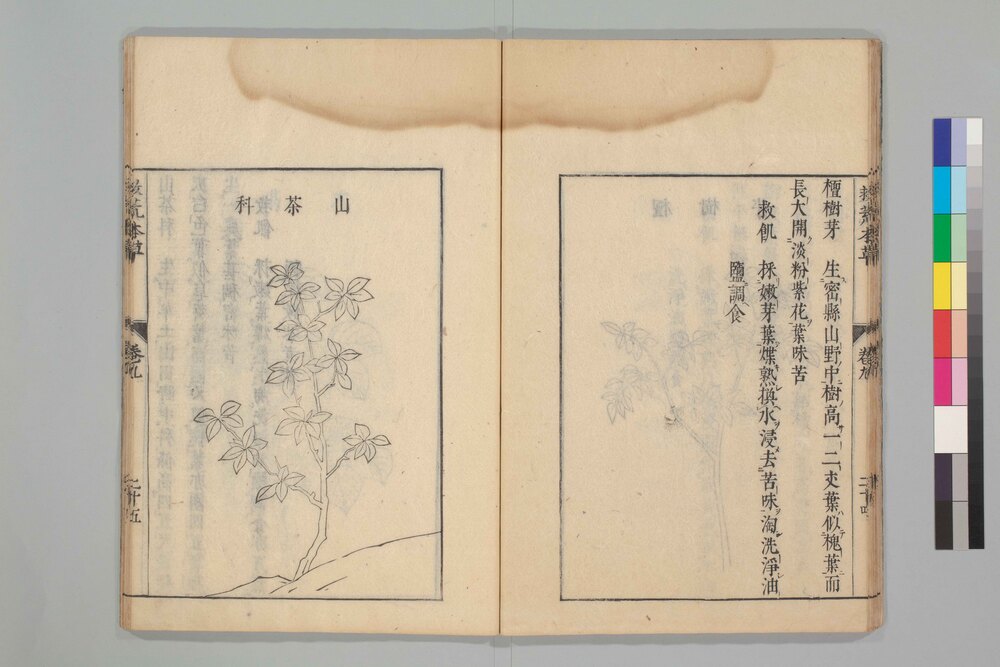 救荒本草
卷九
二十四
檀樹芽 生密縣山野中樹高一二丈葉似槐葉而
長大開淡粉紫花葉味苦
救飢 採嫩芽葉煠熟換水浸去苦味淘洗淨油
鹽調食
山茶科
救荒本草
卷之九
二十五